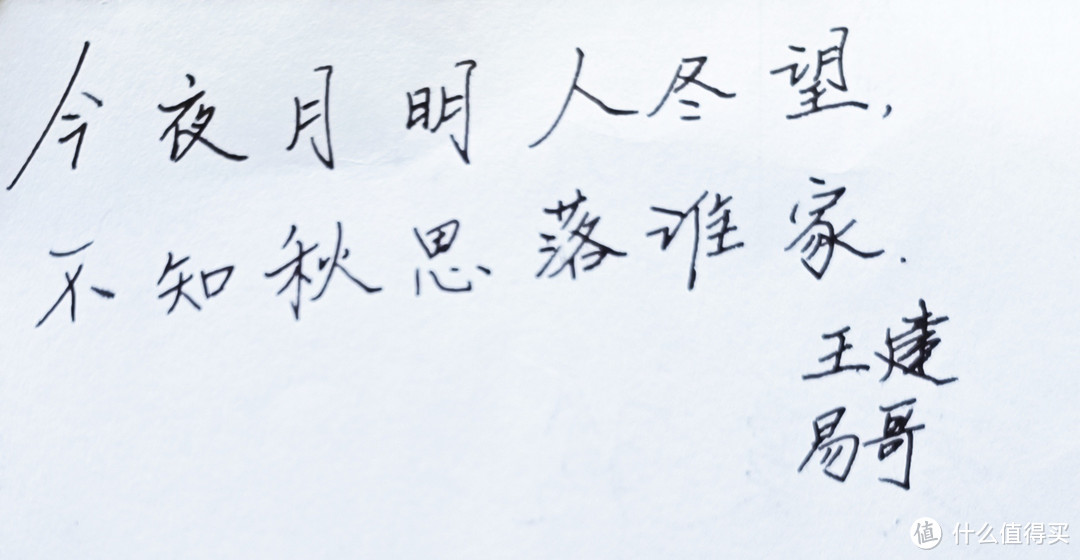 今夜月明人冬望,
不知秋思落谁家.
王建
易哥
值 什么值得买